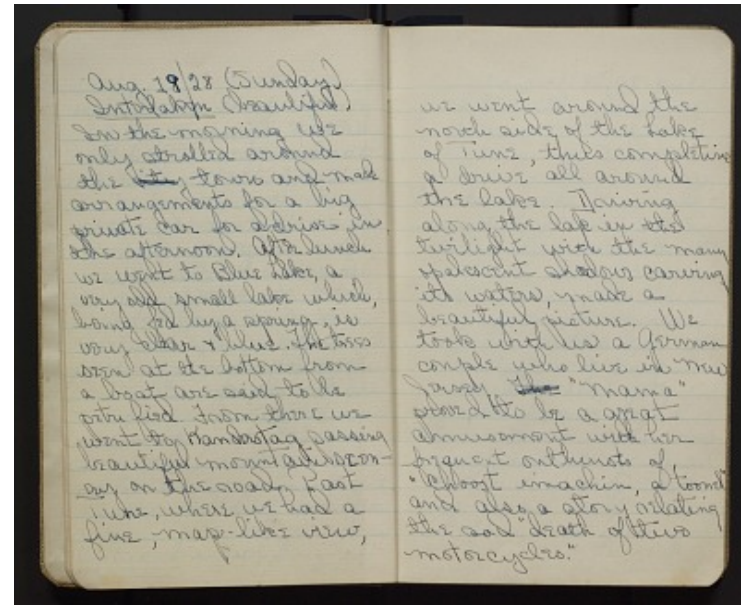 Aug. 19/28 (Sunday)
Interlaken (beautiful)
In the morning we
only strolled around
the city town and made
arrangements for a big
private car for a drive in
the afternoon. After lunch
we went to Blue Lake, a
very small lake which,
being fed by a spring, is
very clear & blue. The trees
seen at the bottom from
a boat are said to be
petrified. From there we
went to passing
beautiful mountain scen-
ery on the road. Past
Tune, where we had a
fine, map-like view,
we went around the
north side of the Lake
of Tune, thus completing
a drive all around
the lake. Driving
along the lake in the
twilight with the many
opalescent shadows
its waters, made a
beautiful picture. We
took with us a German
couple who live in New
Jersey. The "Mama"
proved to be a great
amusement with her
frequent outbursts of,
"Choost imachin, a toonel"
and also a story relating
the sad "death of two
motorcycles."